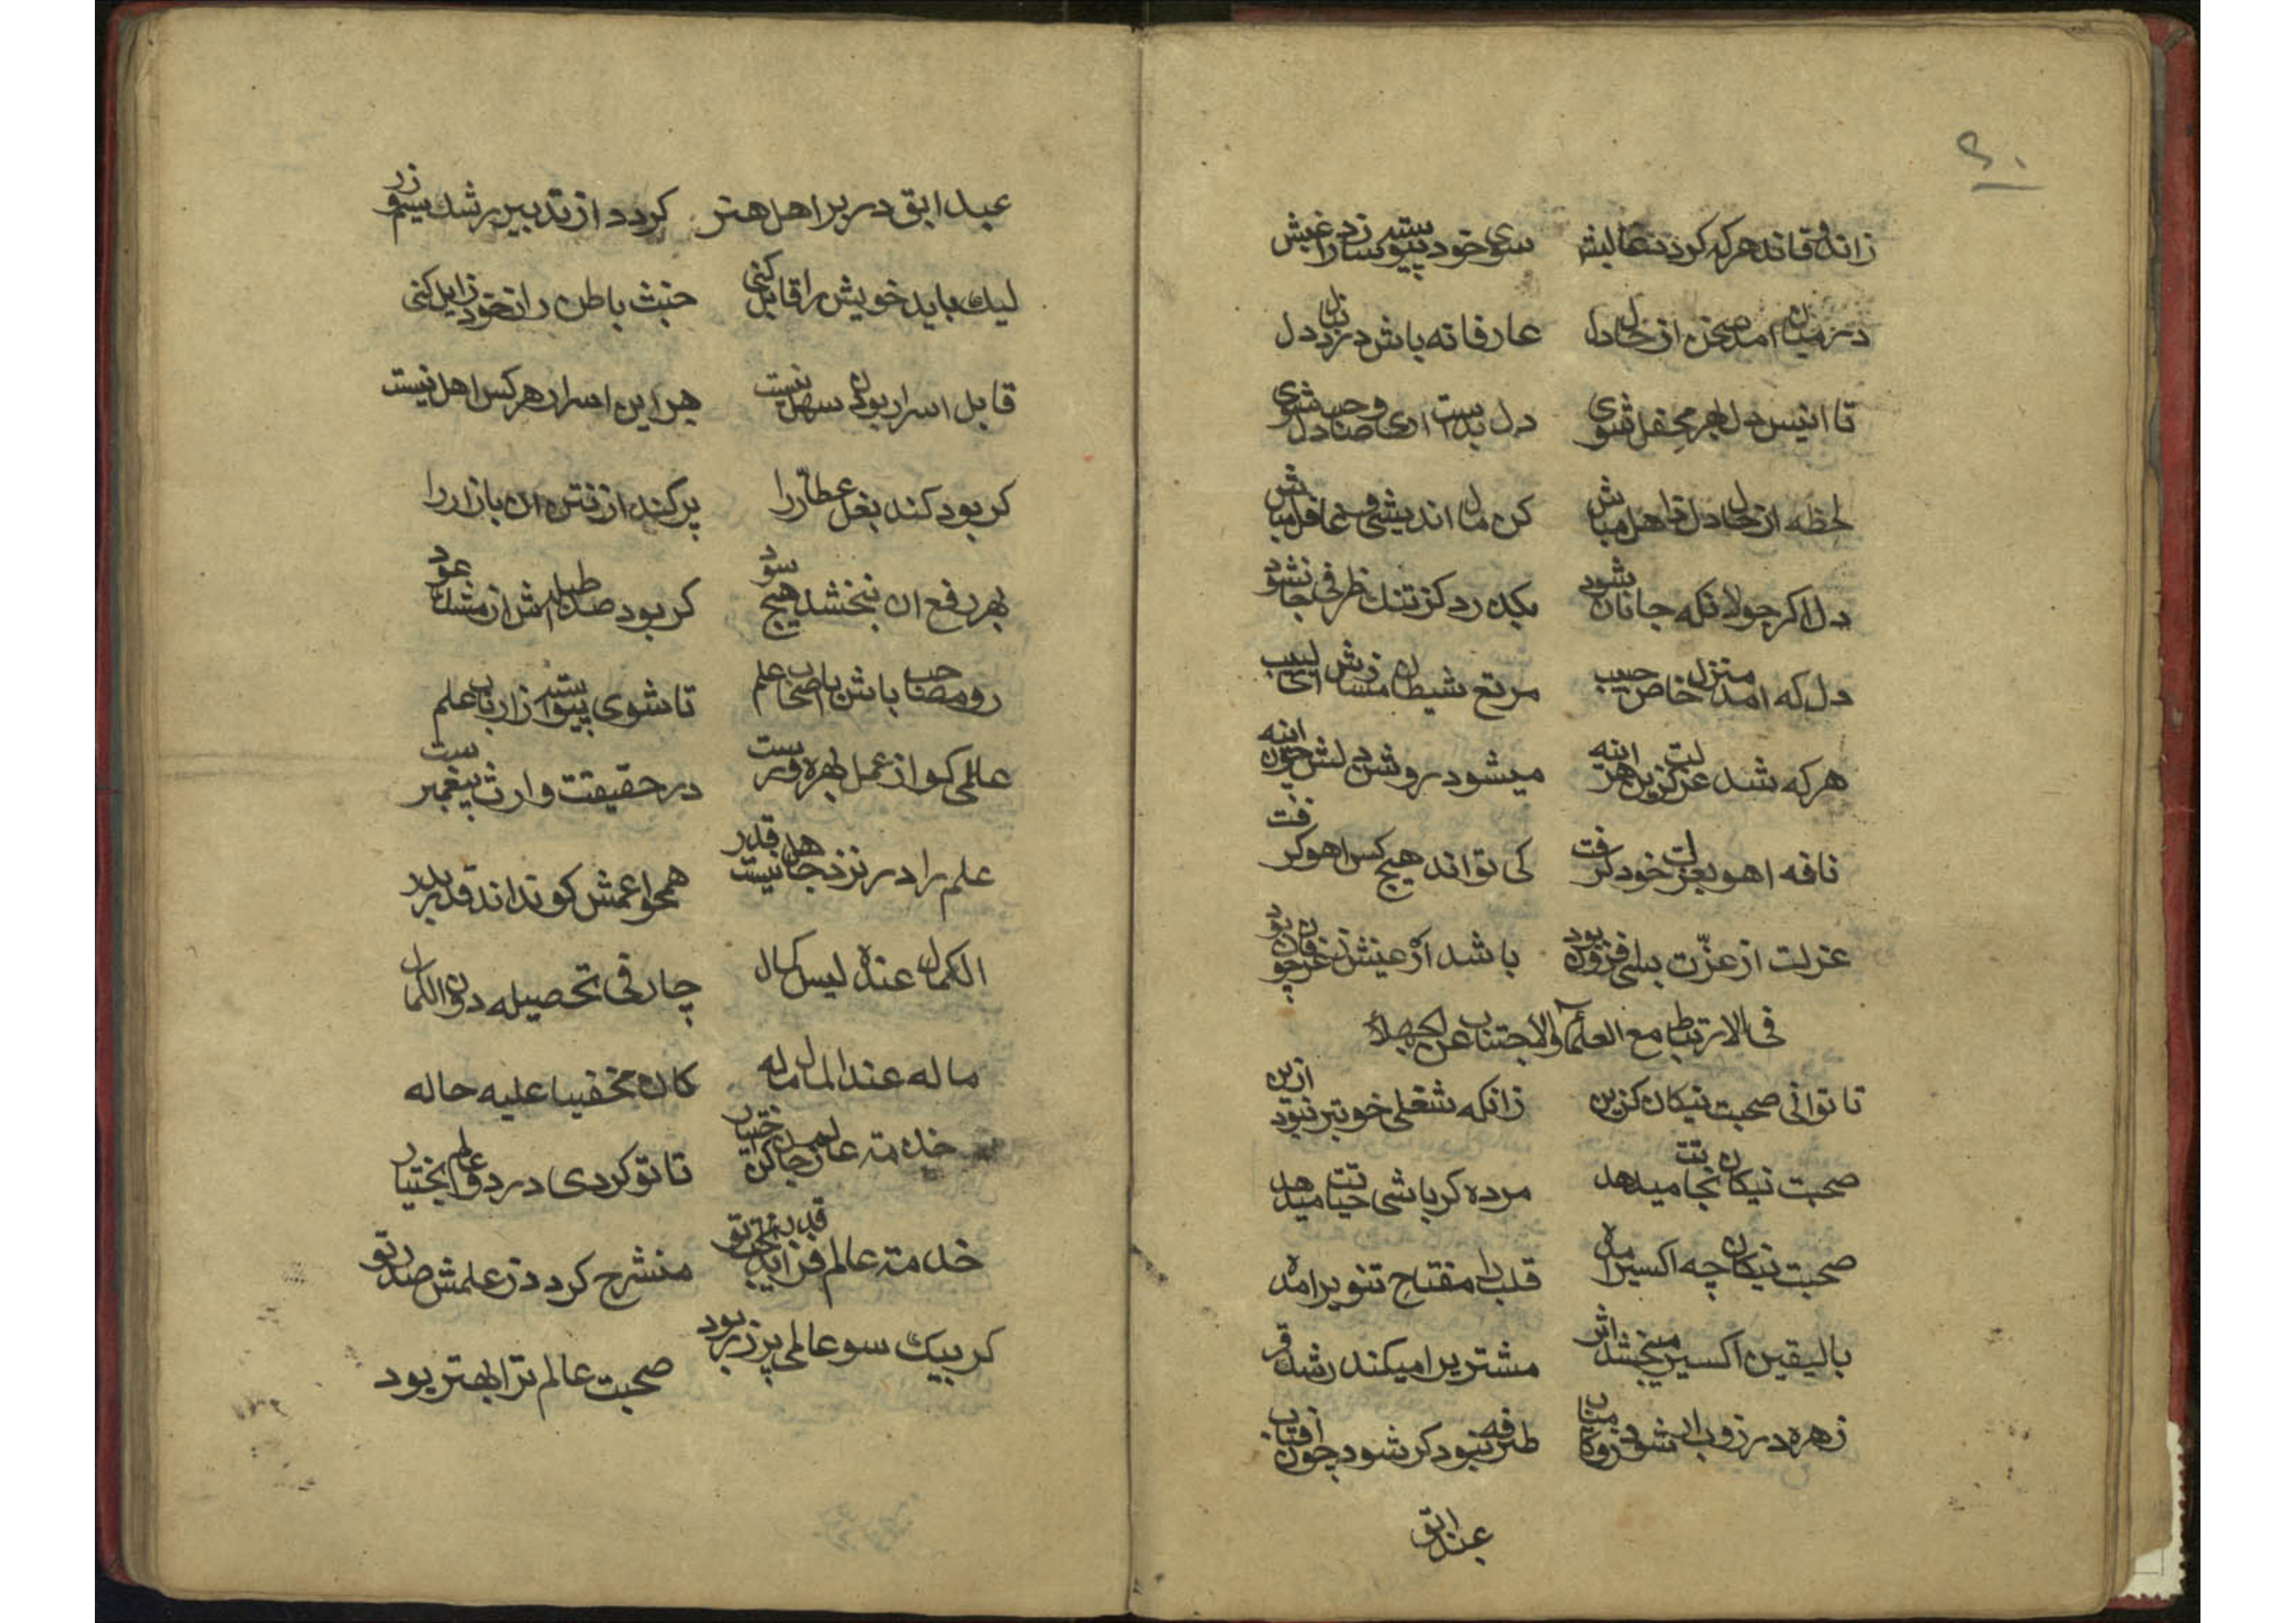 ۹۰
سوی خود پیوسته سازد
عارفانه باش در نزد دل
تا انیس دل بهر محفل شوی دل بدست اری و صاحبدل شوی
لحظه از حال دل ذاهل مباش کن مال اندیشی و غافل مباش
دل اگر جولانکه جانان شود یکدرد کز تنک ظرفی جا نشود
دل که امد منزل خاص حبیب مرتع شیطان مسازش ای لبیب
هرکه شد عزلت کزین هر اینه میشود روشن دلش چون اینه
نافه اهو بعزلت خود کرفت کی تواند هیچ کس اهو کرفت
عزلت از عزّت بسی افزون بود باشد ار عینش ز عرفان چو بود
فی الارتباط مع العلمآء والاجتناب عن الجهلاء
تا توانی صحبت نیکان کزین زانکه شغلی خوبتر نبود ازین
صحبت نیکان نجاتت میدهد مرده کر باشی حیاتت میدهد
صحبت نیکان چه اکسیر امده قلب را مفتاح تنویر امده
بالیقین اکسیر میبخشد اثر مشتریرا میکند رشک قمر
زهره در طرفه نبود کر شود چون افتاب
عبد ابق
عبد ابق در بر اهل هنر کردد از تدبیر رشک سیم و زر
لیک باید خویش را قابل کنی خبث باطن را ز خود زایل کنی
قابل اسرار بودن سهل نیست بهر این اسرار هرکس اهل نیست
کر بود کند بغل عطّار را پر کند از نتن ان بازار را
بهر رفع ان نبخشد هیچ سود کر بود صد طبله اش از مشک و عود
رو مصاحب باش با اصحاب علم تا شوی پیوسته از ارباب علم
عالمی کو از عمل بهره ورست در حقیقت وارث پیغمبرست
علم را در نزد جاهل نیست قدر همچو اعمش کو نداند قدر بدر
الکمال عنده لیس کمال حار فی تحصیله دون الکمال
ما له عند المال ماله کان مخفیا علیه حاله
خدمت عالم ز جان کن اختیار تا تو کردی در دو عالم بختیار
خدمت عالم فزاید قدر تو منشرح کردد ز علمش صدر تو
کر بیک سو عالمی پر زر بود صحبت عالم ترا بهتر بود